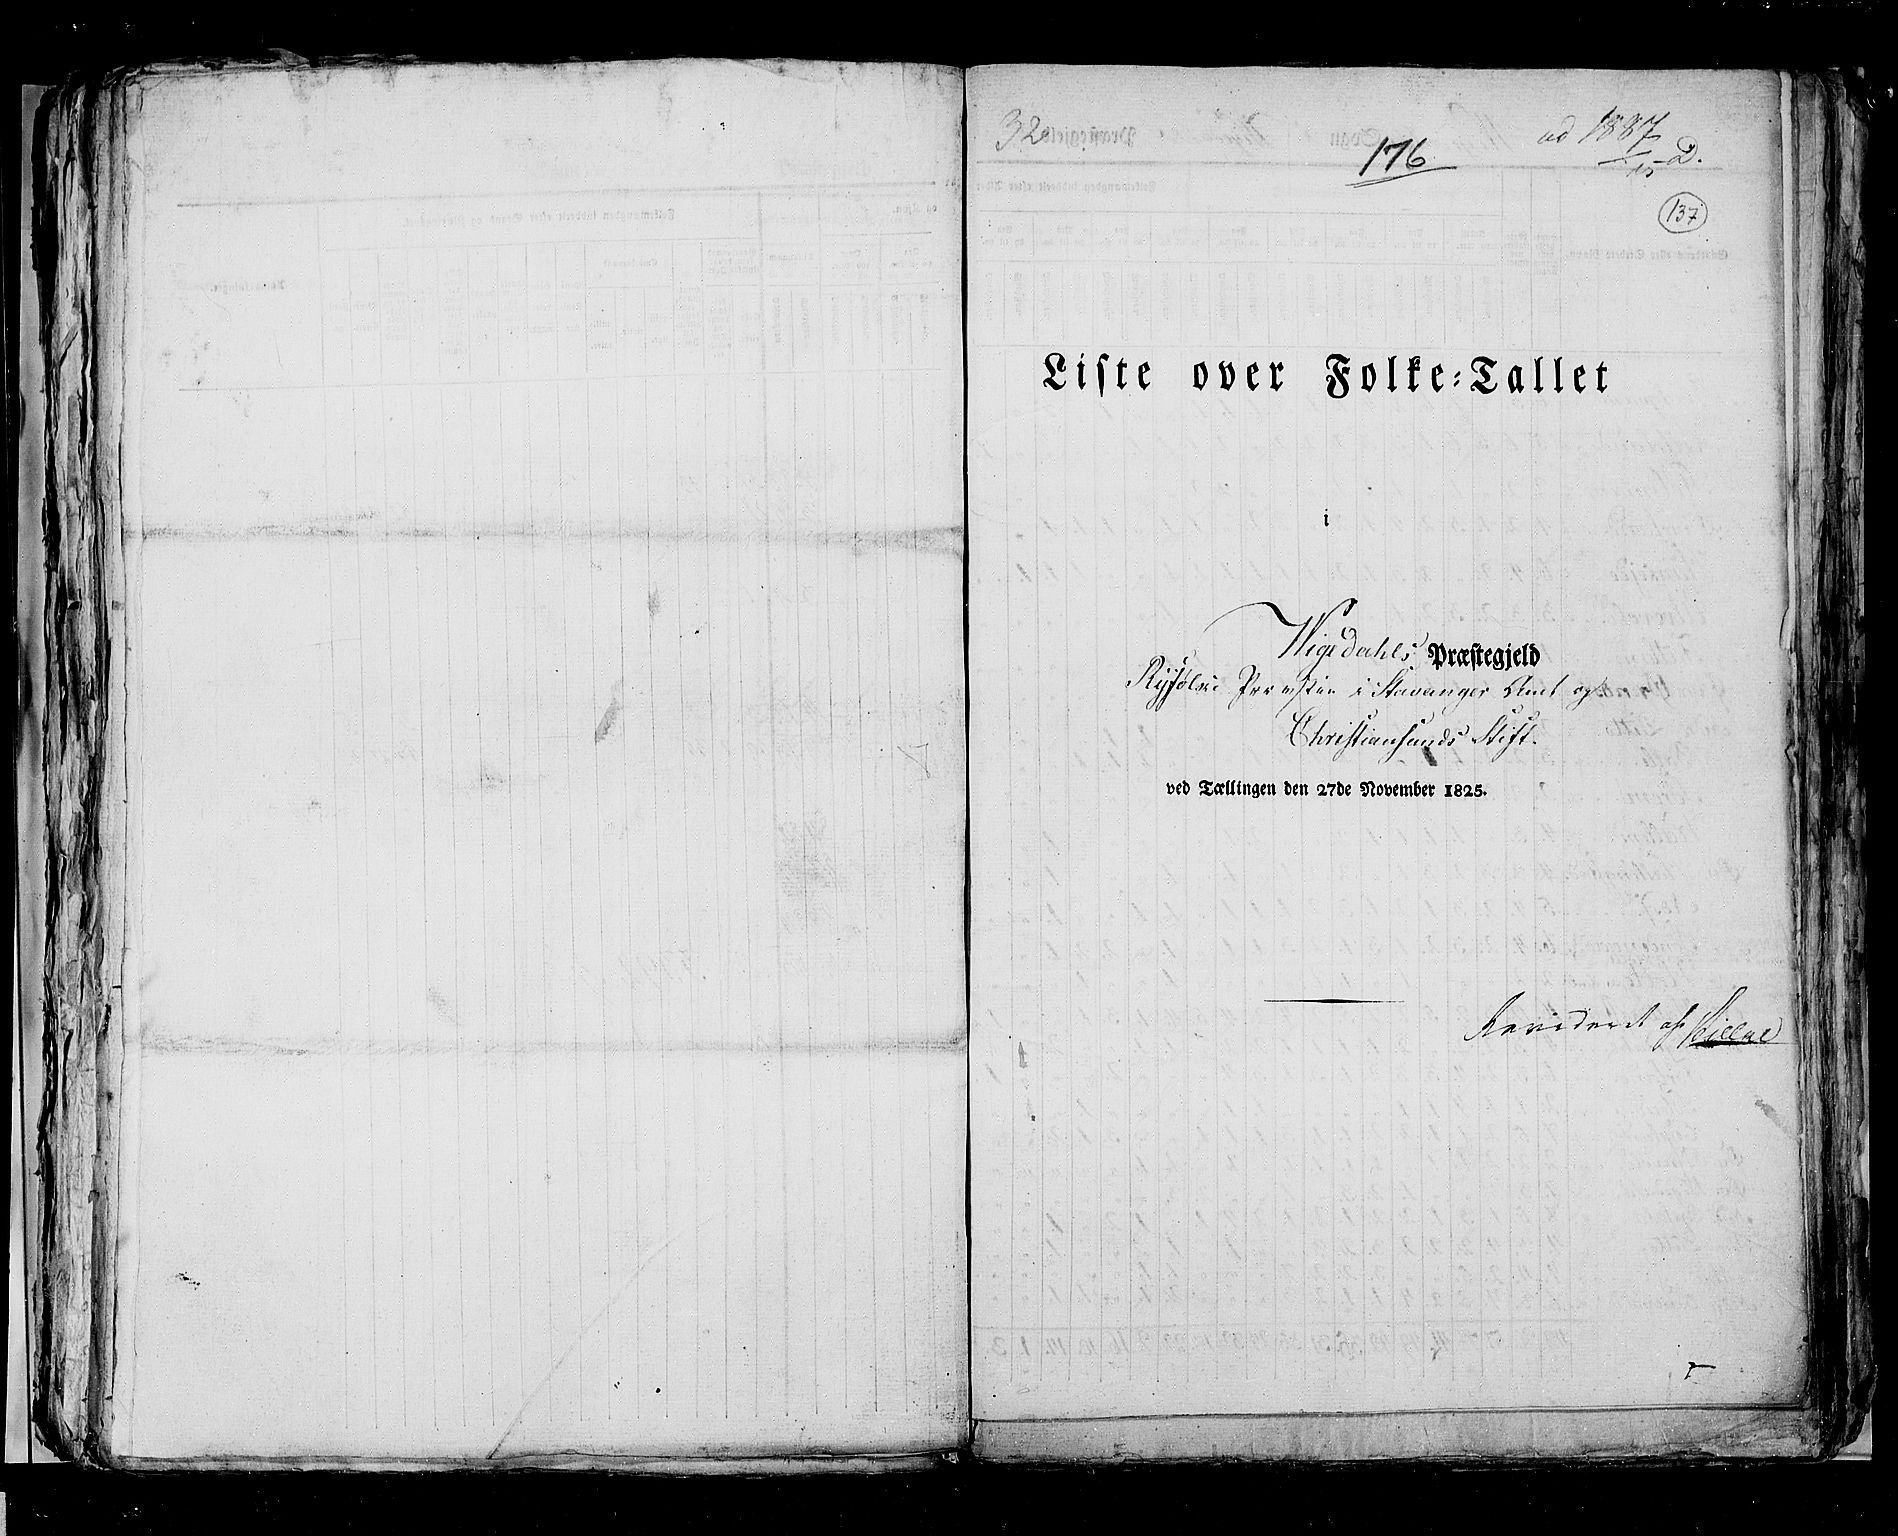 32
176
ad 1887
15 D.
137
Liste over Folke=Tallet
i
Wigedahls Præstegjeld
Ryfølke Provstie i Stavanger Amt og
Christiansands Stift.
ved Tællingen den 27de November 1825.
Revideret af